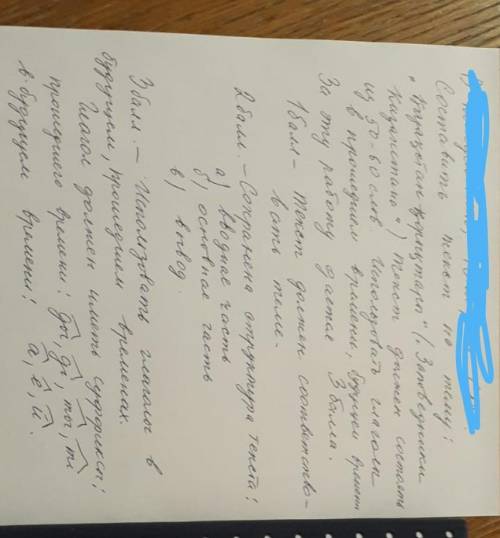 Составить текст на тему:
"Қазақстан қорықтары" ("Заповедники
Казахстана") Текст должен состоять
из 50-60 слов. Использовать глаголы
в прошедшем времени, будущем времени
За эту работу дается 3 балла.
1 балл - текст должен соответство-
вать теме.
2 балл. - Сохранена структура текста:
а) вводная часть
б) основная часть
в) вывод.
3 балл. - Использовать глаголы в
будущем, прошедшем временах.
Глагол должен иметь суффиксы:
прошедшего времени: ды, ді, ты, ті
в будущем времени: а, е, й.